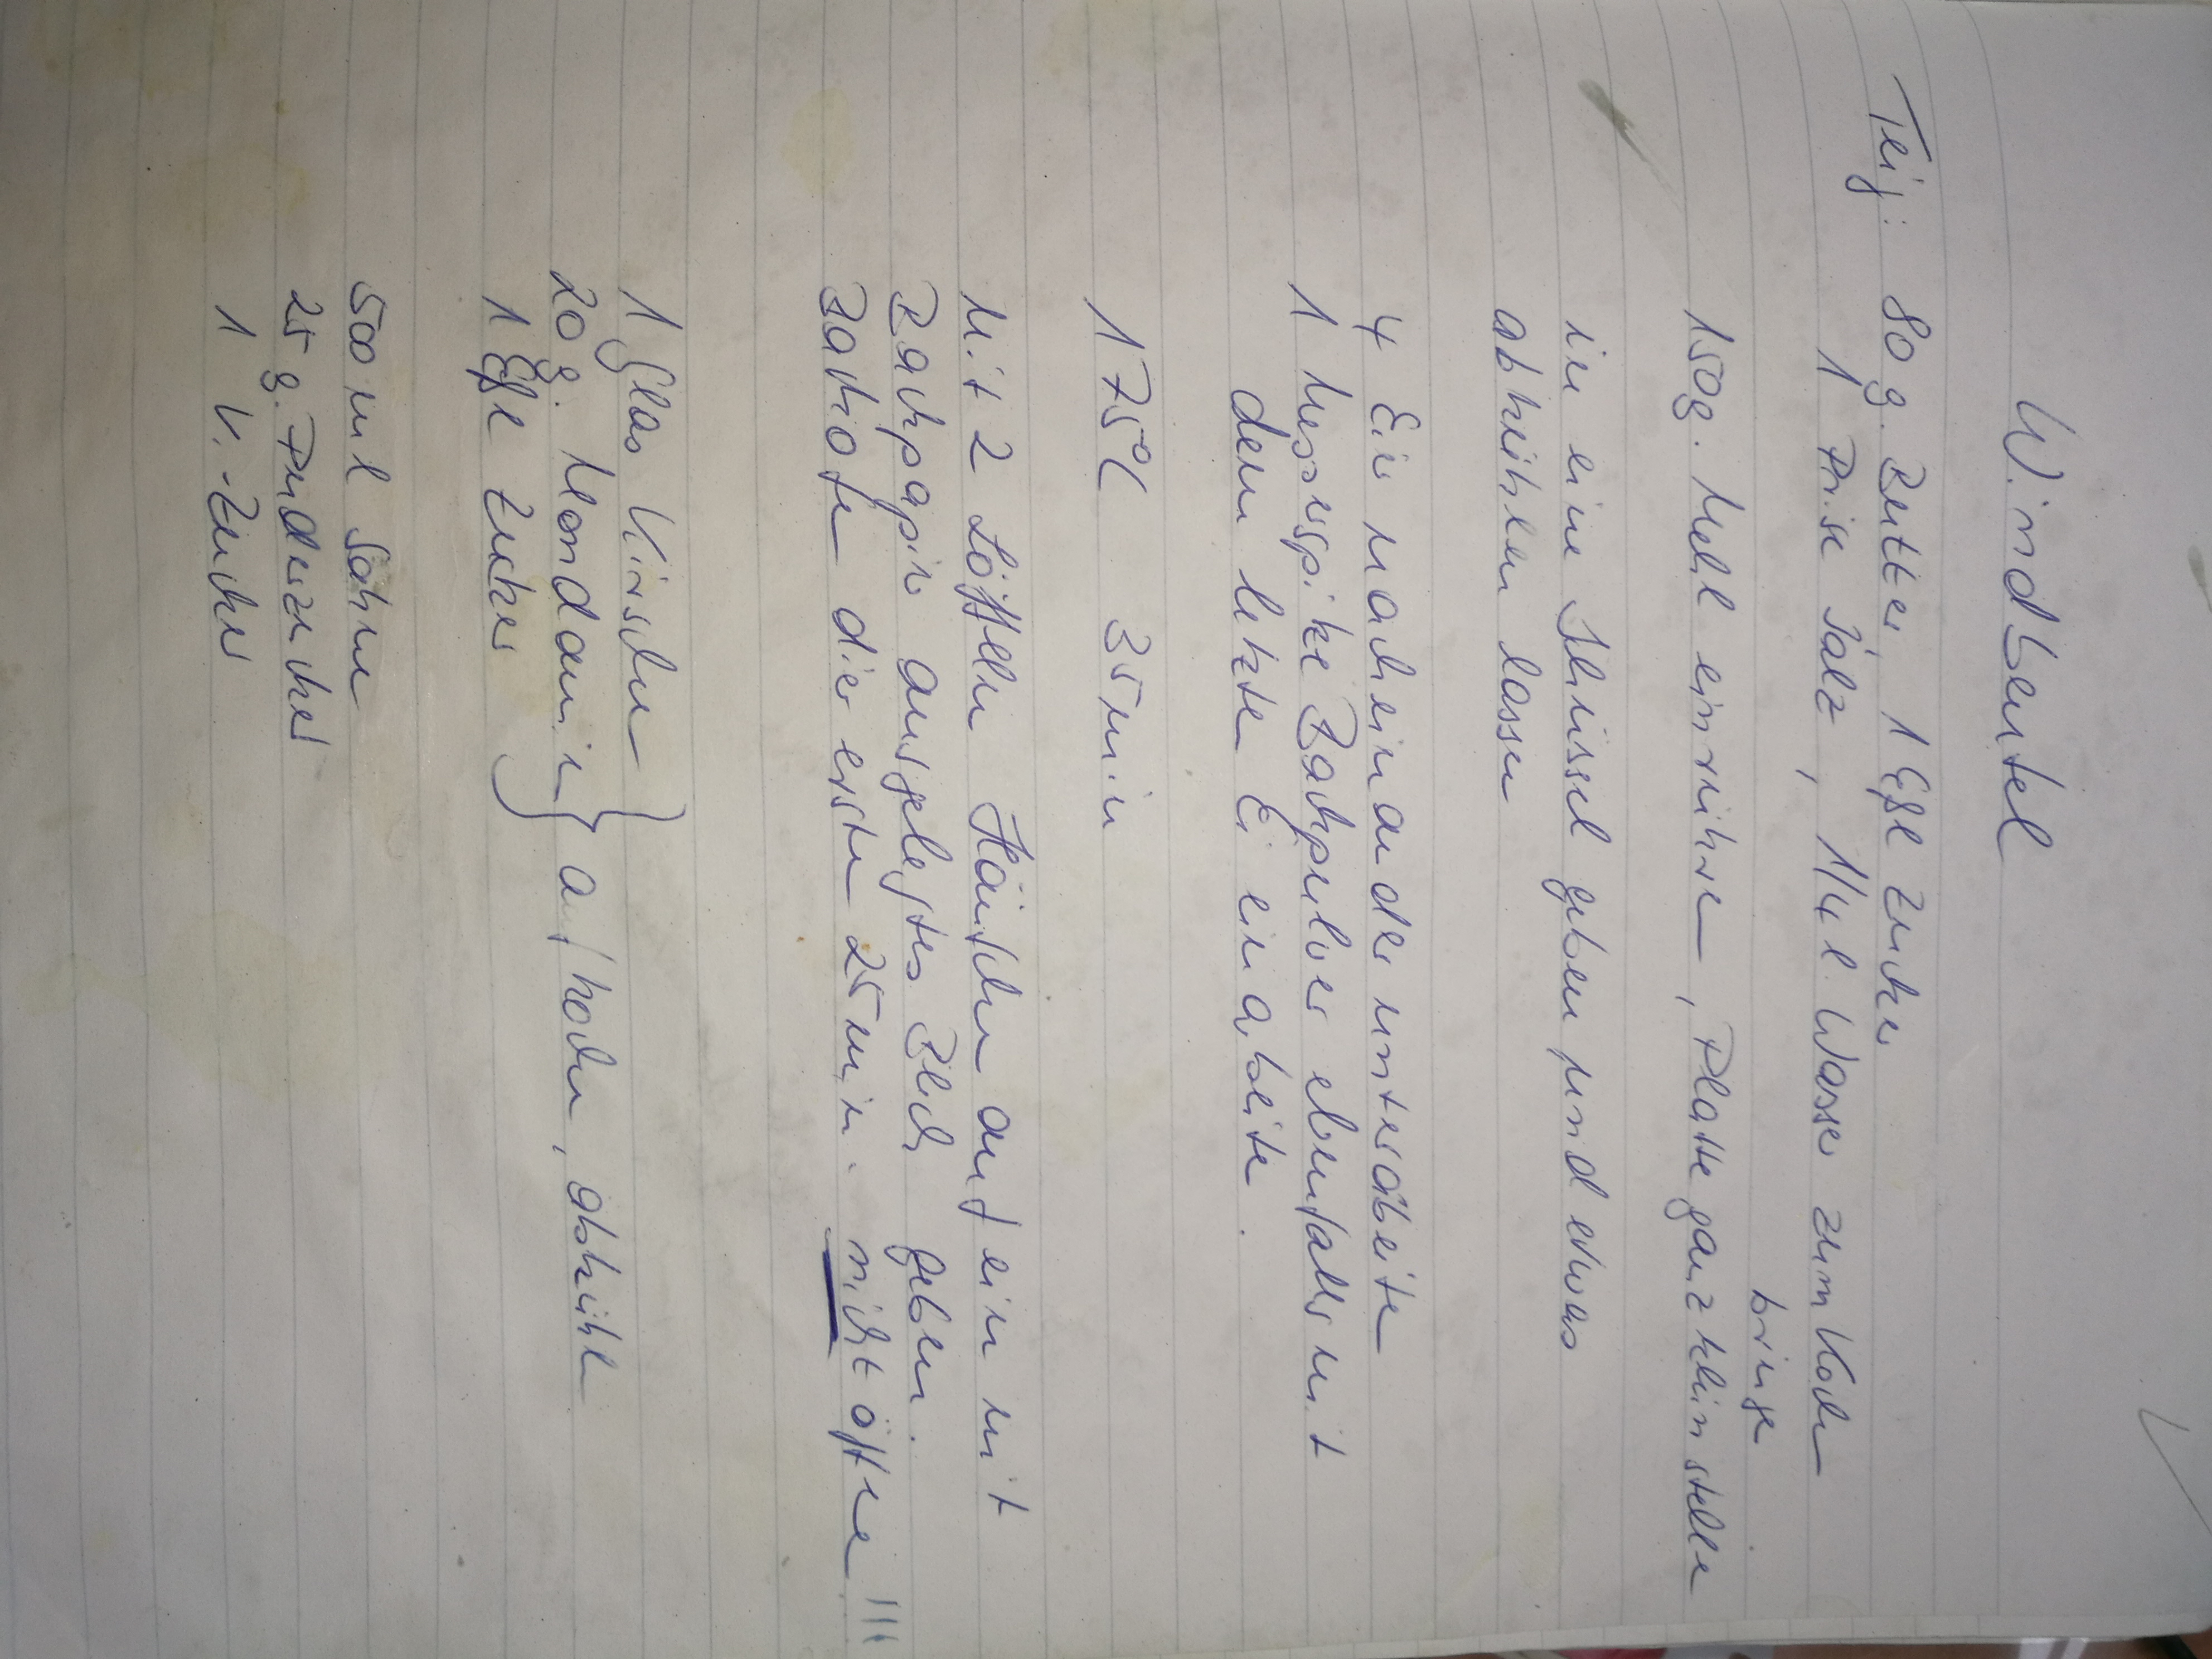 Windbeutel
Teig: 80 g. Butter, 1 Eßl Zucker
1 Prise Salz, 1/4 l. Wasser zum Kochen
bringen
150g. Mehl einrühren, Platte ganz klein stellen
in eine Schüssel geben und etwas
abkühlen lassen
4 Eier nacheinander unterarbeiten
1 Messerspitze Backpulver ebenfalls mit
dem letzten Ei einarbeiten.
175°C 35 min
Mit 2 Löffeln Häufchen auf ein mit
Backpapier ausgelegtes Blech geben.
Backofen die ersten 25 min. nicht öffnen!!!
1 Glas Kirschen
20 g. Mondamin } aufkochen, abkühlen
1 Eßl Zucker
500 ml Sahne
25 g. Puderzucker
1 V.-Zucker